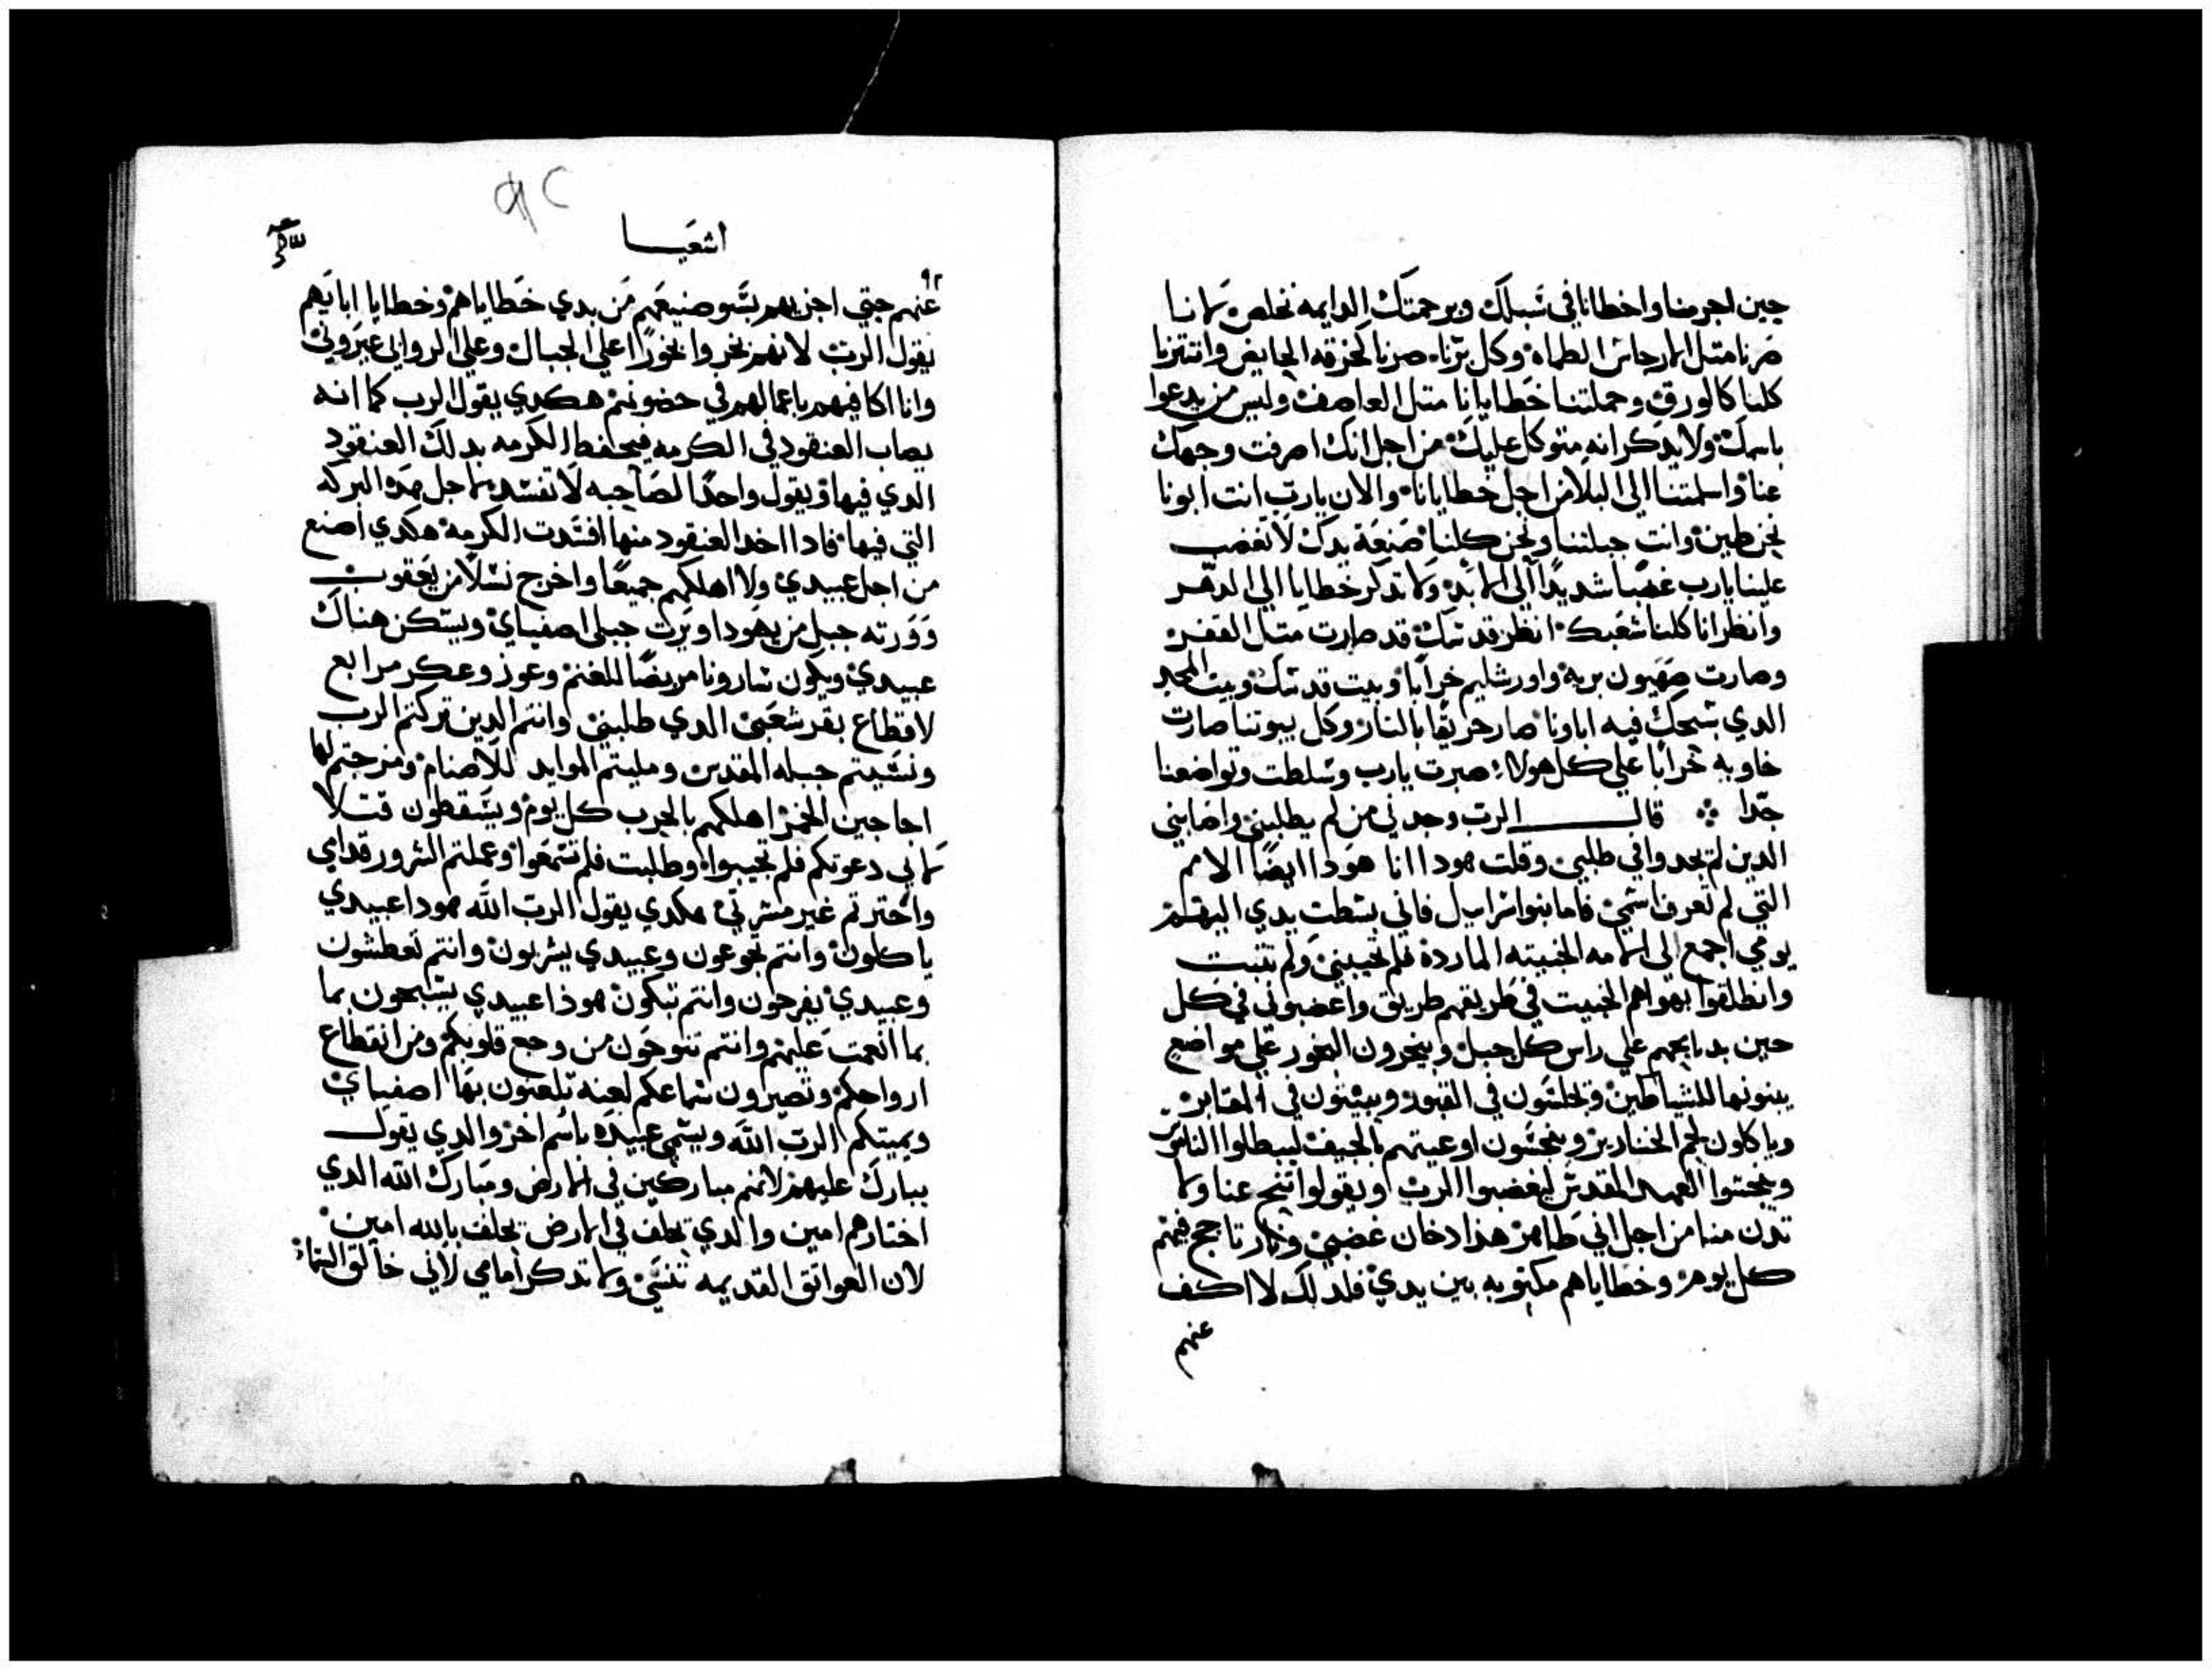 حين اجرمنا واخطانا في سبلك وبرحمتك الدايمه نخلص لاننا
صرنا متل الارجاس الطماه وكل برنا صرنا كخرقه الحايض وانتترنا
كلنا كالورق وحملتنا خطايانا متل العاصف وليس من يدعوا
باسمك ولا يدكر انه متوكل عليك من اجل انك اصرفت وجهك
عنا واسلمتنا الي البلا من اجل خطايانا والان يارب انت ابونا
نحن طين وانت جبلتنا ونحن كلنا صنعة يدك لا تغضب
علينا يارب غضبا شديدا الي الابد ولا تدكر خطايا الي الدهر
وانظر انا كلنا شعبك انظر قدسك قد صارت متل القفر
وصارت صهيون بريه واورشليم خرابا وبيت قدسك وبيت المجد
الدي سبحك فيه اباونا صار حريقا بالنار وكل بيوتنا صارت
خاويه خرابا علي كل هولا صبرت يارب وسلطت وتواضعنا
جدا قال الرب وجدني من لم يطلبني واصابني
الدين لم يجدوا في طلبي وقلت هودا انا هودا ايضا الامم
التي لم تعرف اسمي فاما بنوا اسراييل فاني بسطت يدي اليهم
يومي اجمع الي الامه الخبيته الماردة فلم تجيبني ولم تتبت
وانطلقوا بهواهم الخبيت في طريقهم طريق واغضبوني في كل
حين بدبايحهم علي راس كل جبل ويبخرون البخور علي مواضع
يبنونها للشياطين ويجلسون في القبور ويبيتون في المقابر
وياكلون لحم الخنازير وينجسون اوعيتهم بالجيف ليبطلوا الناس
وينجسوا العهد المقدس ليغضبوا الرب ويقولوا تنح عنا ولا
تدن منا من اجل اني طاهر هذا دخان غضبي ونار تاجج فيهم
كل يوم وخطاياهم مكتوبه بين يدي فلدلك لا اكف
عنهم
٩٢
اشعيا
٩٢
عنهم حتي اجزيهم بسو صنيعهم من بدي خطاياهم وخطايا ابايهم
يقول الرب لانهم بخروا بخورا علي الجبال وعلي الروابي عيروني
وانا اكافيهم باعمالهم في حضونهم هكدي يقول الرب كما انه
يصاب العنقود في الكرمه فيحفظ الكرمه بدلك العنقود
الدي فيها ويقول واحدا لصاحبه لا تفسده لاجل هده البركه
التي فيها فادا اخد العنقود منها افسدت الكرمه هكدي اصنع
من اجل عبيدي ولا اهلكهم جميعا واخرج نسلا من يعقوب
وورته جبل من يهودا ويرت جبلي اصفياي ويسكن هناك
عبيدي ويكون سارونا مربضا للغنم وعوز وعكر مرابع
لاقطاع بقر شعبي الدي طلبني وانتم الدين تركتم الرب
ونسيتم جبله المقدس ومليتم الموايد للاصنام ومزجتم لها
اجاجين الخمر اهلككم بالحرب كل يوم ويسقطون قتلا
لاني دعوتكم فلم تجيبوا وطلبت فلم تسمعوا وعملتم الشرور قدامي
واخترتم غير مسرتي هكدي يقول الرب الله هودا عبيدي
ياكلون وانتم تجوعون وعبيدي يشربون وانتم تعطشون
وعبيدي يفرحون وانتم تبكون هوذا عبيدي يسبحون بما
بما انعمت عليهم وانتم تنوحون من وجع قلوبكم ومن انقطاع
ارواحكم وتصيرون سماعكم لعنه تلعنون بها اصفياي
ويميتكم الرب الله ويسمي عبيده باسم اخر والدي يقول
يبارك عليهم لانهم مباركين في الارض ومبارك الله الدي
اختارهم امين والدي يحلف في الارض يحلف بالله امين
لان العوايق القديمه تنسي ولا تدكر امامي لاني خالق السما